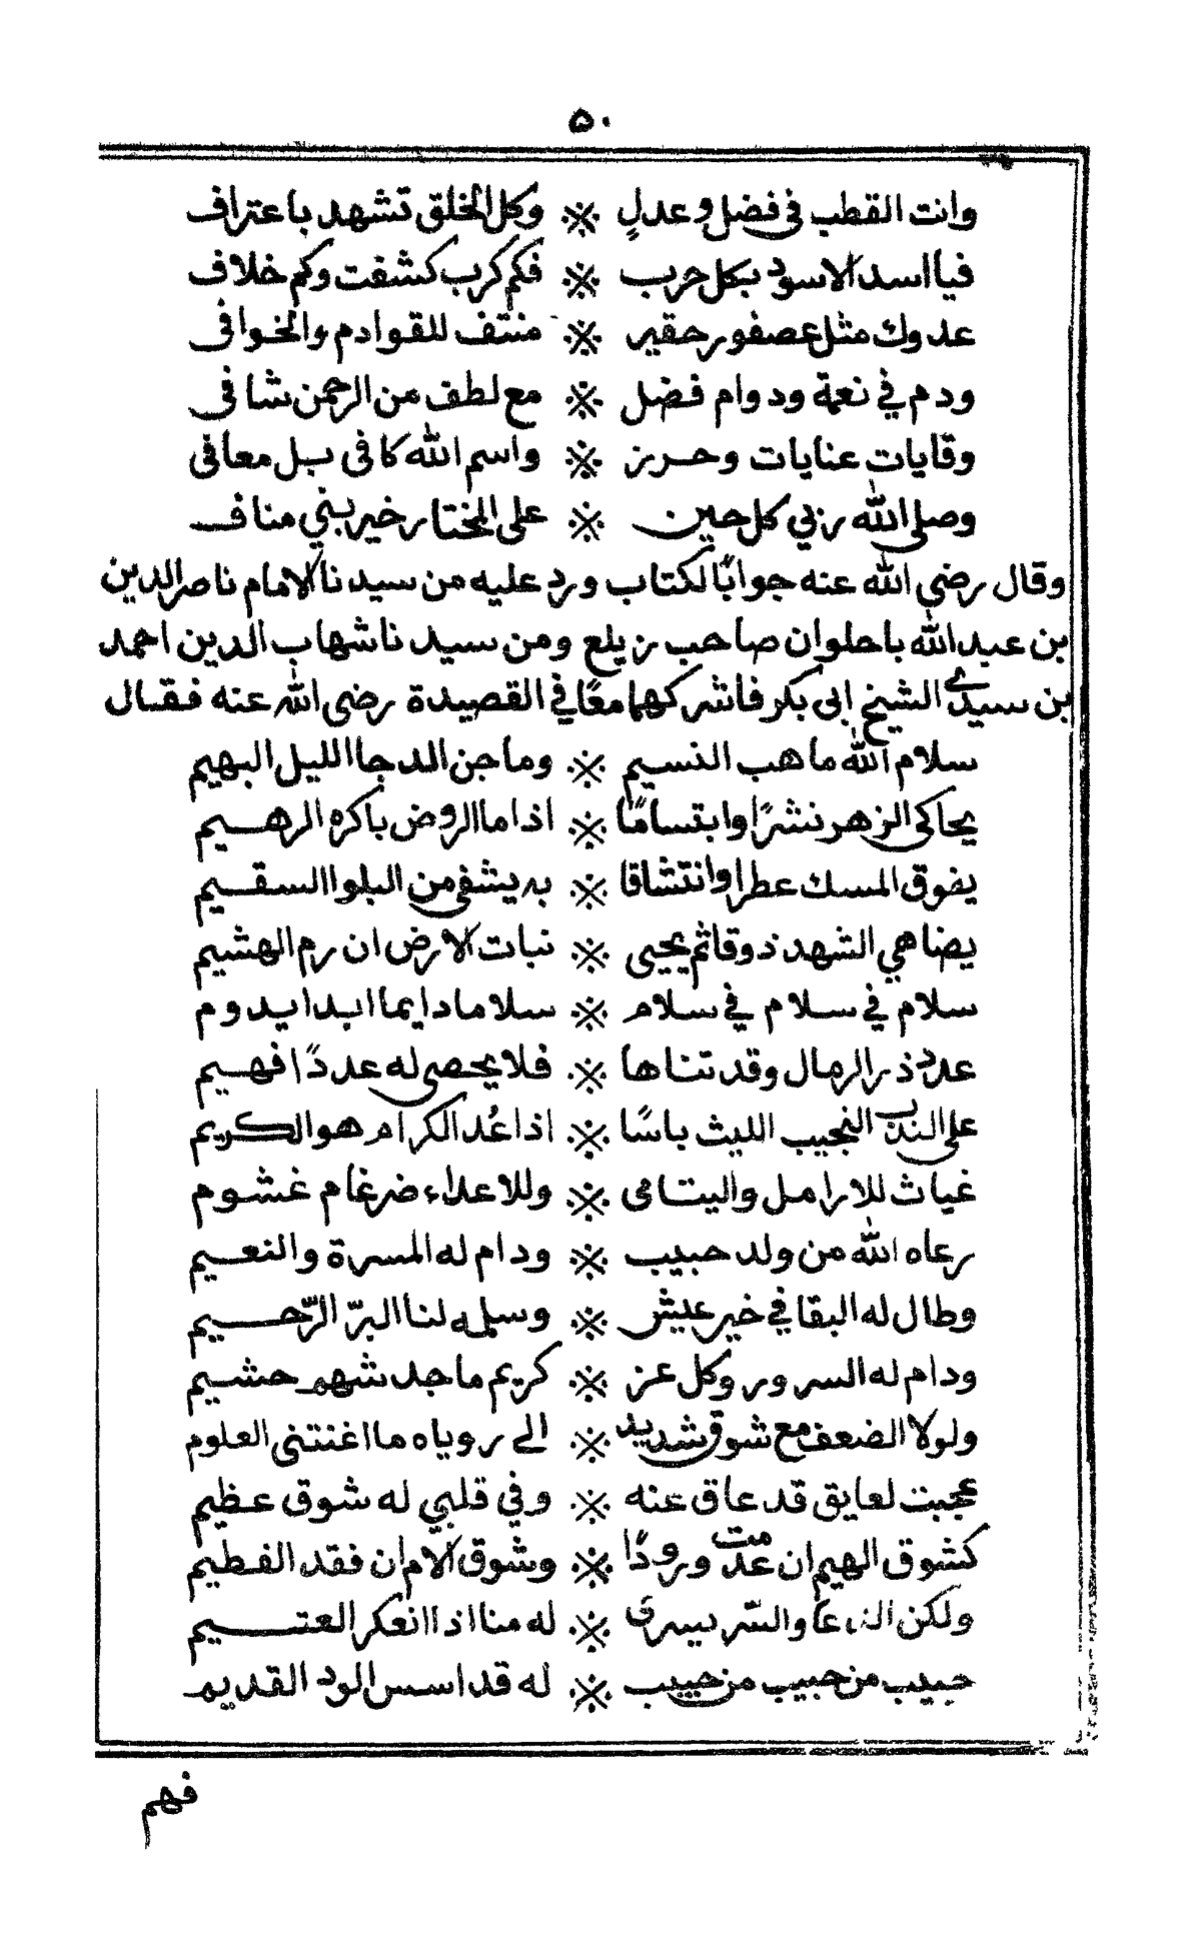 ٥٠
وانت القطب فى فضل وعدلٍ ※ وكل الخلق تشهد باعتراف
فيا اسد الاسود بكل حرب ※ فكم كرب كشفت وكم خلاف
عدوك مثل عصفور حقير ※ منتف للقوادم والخوافى
ودم في نعمة ودوام فضل ※ مع لطف من الرحمن شافى
وقايات عنايات وحرز ※ واسم الله كافى بل معافى
وصلى الله ربي كل حين ※ على المختار خير بني مناف
وقال رضي الله عنه جوابًا لكتاب ورد عليه من سيدنا الامام ناصر الدين
بن عبد الله باحلوان صاحب زيلع ومن سيدنا شهاب الدين احمد
بن سيدي الشيخ ابى بكر فاشركهما معًا في القصيدة رضى الله عنه فقال
سلام الله ما هب النسيم ※ وما جن الدجا الليل البهيم
يحاكى الزهر نشرًا وابتسامًا ※ اذا ما الروض باكره الرهيم
يفوق المسك عطرا وانتشاقا ※ به يشفى من البلوا السقيم
يضاهي الشهد ذوقا ثم يحيى ※ نبات الارض ان رم الهشيم
سلام في سلام في سلام ※ سلاما دايما ابدا يدوم
عدد ذر الرمال وقد تناها ※ فلا يحصى له عددًا فهيم
على الندب النجيب الليث باسًا ※ اذا عُد الكرام هو الكريم
غياث للارامل واليتامى ※ وللاعداء ضرغام غشوم
رعاه الله من ولد حبيب ※ ودام له المسرة والنعيم
وطال له البقا في خير عيش ※ وسلمه لنا البرّ الرّحيم
ودام له السرور وكل عز ※ كريم ماجد شهم حشيم
ولولا الضعف مع شوق شديد ※ الى روياه ما اغنتنى العلوم
عجبت لعايق قد عاق عنه ※ وفي قلبي له شوق عظيم
كشوق الهيم ان عدمت ورودًا ※ وشوق الام ان فقد الفطيم
ولكن الدعا والسّر يسرى ※ له منا اذا انعكر العتيم
حبيب من حبيب من حبيب ※ له قد اسس الود القديم
فهم